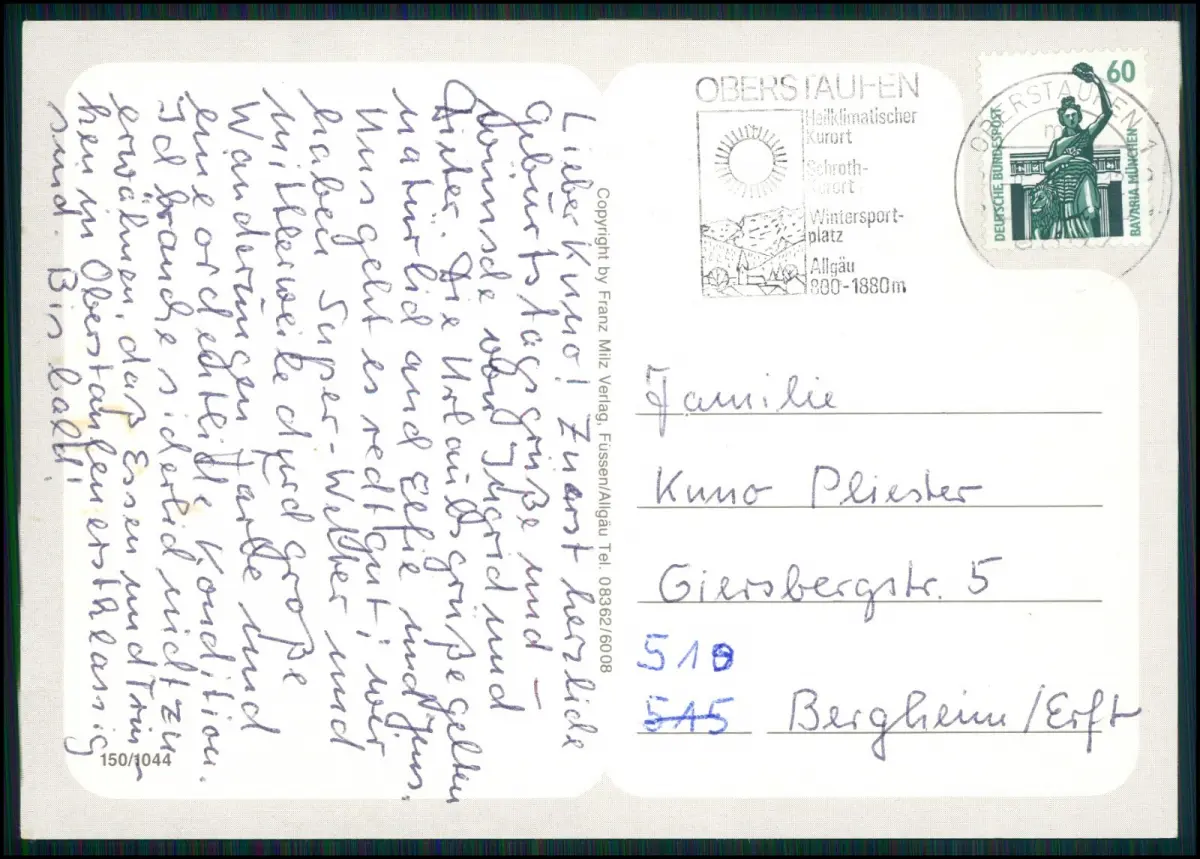 Lieber Kuno! Zuerst herzliche
Geburtstagsgrüße und
Wünsche von Ingrid und
Dieter. Die Urlaubsgrüße gelten
natürlich auch Elfie und Jus.
Uns geht es recht gut; wir
haben Super-Wetter und
mittlerweile durch große
Wanderungen Farbe und
eine ordentliche Kondition.
Ich brauche sicherlich nicht zu
erwähnen, daß Essen und Trin-
ken in Oberstaufen erstklassig
sind. Bis bald!
150/1044
Copyright by Franz Milz Verlag, Füssen/Allgäu Tel. 08362/6008
OBERSTAUFEN
Heilklimatischer
Kurort
Schroth-
kurort
Wintersport-
platz
Allgäu
800-1880m
OBERSTAUFEN 1
60
DEUTSCHE BUNDESPOST
BAVARIA MÜNCHEN
Familie
Kuno Pliester
Giersbergstr. 5
510
515 Bergheim/Erft